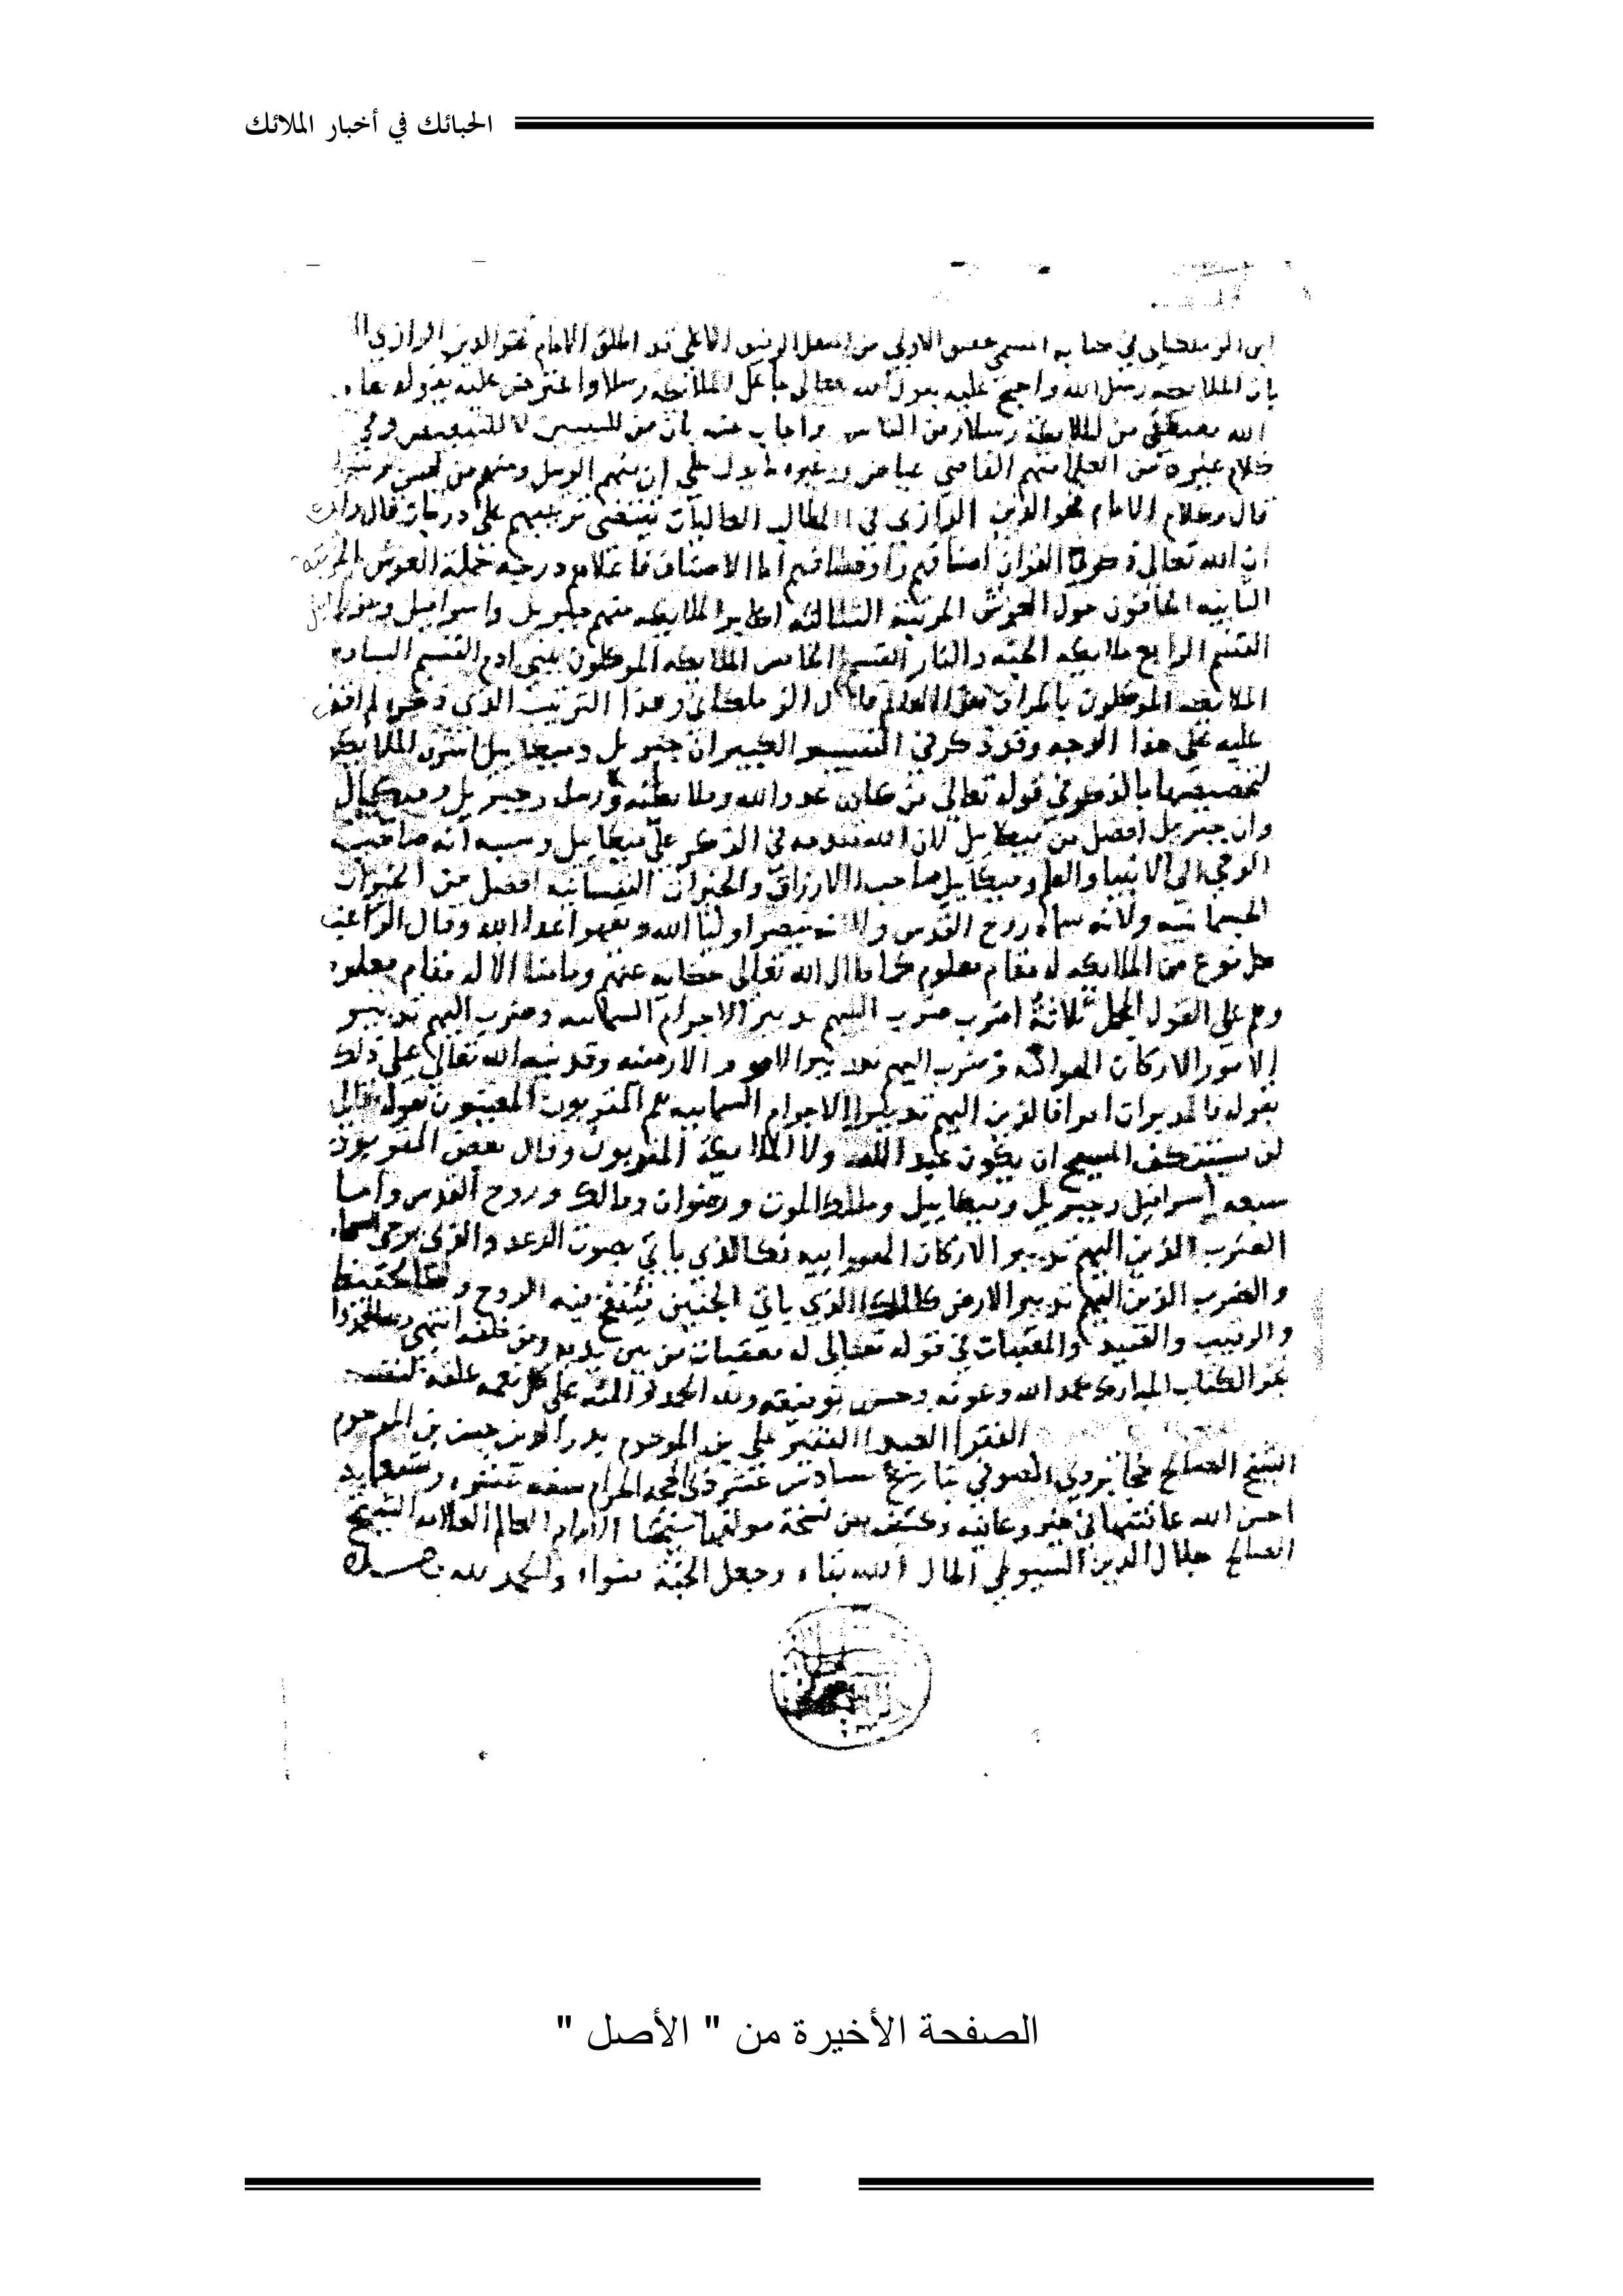 الحبائك في أخبار الملائك
ابن الزملكاني في كتابه المسمى تحقيق الاولى من اهل الرفيق الاعلى قد اطلق الامام فخر الدين الرازي
بان الملايكه رسل الله واحتج عليه بقول الله تعالى جاعل الملائكة رسلا واعترض عليه بقوله تعا
الله يصطفي من الملايكة رسلا ومن الناس واجاب عنه بان من للتبيين لا للتبعيض وفي
كلام غيره من العلما منهم القاضي عياض وغيره ما يدل على ان منهم الرسل ومنهم من ليس
قال وكلام الامام فخر الدين الرازي في المطالب العاليات يقتضي ترتيبهم على درجات قال
ان الله تعالى ذكر في القران اصنافهم واوصافهم اما الاصناف فاعلاهم درجة حملة العرش المرتبة
الثانيه الحافون حول العرش المرتبة الثالثه اكابر الملايكه منهم جبريل واسرافيل
القسم الرابع ملايكه الجنه والنار القسم الخامس الملايكه الموكلون ببني ادم القسم السادس
الملايكه الموكلون باطراف هذا العالم قال الزملكاني وهذا الترتيب الذي ذكره لم اقف
عليه على هذا الوجه وقد ذكر في التفسير الكبير ان جبريل وميكاييل اشرف الملايكه
لتخصيصهما بالذكر في قوله تعالى من كان عدوا لله وملايكته ورسله وجبريل وميكال
وان جبريل افضل من ميكاييل لان الله قدمه في الذكر على ميكاييل وسببه انه صاحب
الوحي الى الانبيا والعلم وميكاييل صاحب الارزاق والخيرات النفسانيه افضل من الخيرات
الجسمانيه ولانه سماه روح القدس ولانه ينصر اوليا الله ويقهر اعدا الله وقال الراغب
كل نوع من الملايكه له مقام معلوم كما قال الله تعالى حكايه عنهم وما منا الا له مقام معلوم
وهم على القول المجمل ثلاثة اضرب ضرب اليهم تدبير الاجرام السماييه وضرب اليهم تدبير
الامور الاركان الهوائيه وضرب اليهم تدبير الامور الارضيه وقد نبه الله تعالى على ذلك
بقوله فالمدبرات امرا فالذين اليهم تدبير الاجرام السماييه هم المقربون المعنيون بقوله تعالى
لن يستنكف المسيح ان يكون عبدا لله ولا الملايكة المقربون وقال بعض المقربون
سبعه اسرافيل وجبريل وميكاييل وملك الموت ورضوان ومالك وروح القدس واما
الضرب الذين اليهم تدبير الاركان الهوائيه فكالذي ياتي بصوت الرعد والذي يزجي السحاب
والضرب الذين اليهم تدبير الارض كالملك الذي ياتي الجنين فينفخ فيه الروح وكالحفظة
والرقيب والعتيد والمعقبات في قوله تعالى له معقبات من بين يديه ومن خلفه انتهى
نجز الكتاب المبارك بحمد الله وعونه وحسن توفيقه ولله الحمد والمنه على كل نعمه علقه لنفسه
الفقير علي بن المرحوم بدر الدين حسن بن المرحوم
الشيخ الصالح الصوفي بتاريخ سادس عشر ذي الحجه الحرام سنه
احسن الله عاقبتها في خير وعافيه وكتبت من نسخة مولفها شيخنا الامام العالم العلامه الشيخ
الصالح جلال الدين السيوطي اطال الله بقاه وجعل الجنة مثواه والحمد لله وحده
الصفحة الأخيرة من " الأصل "